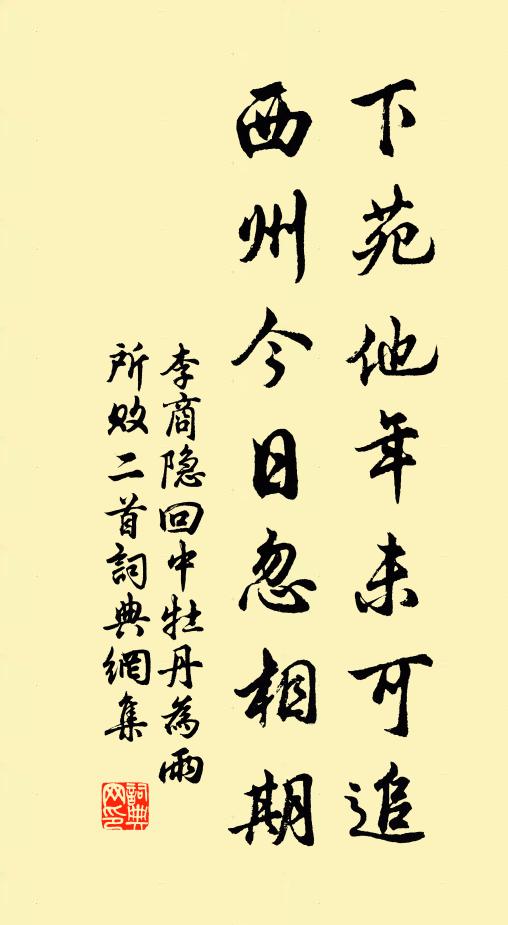 下苑他年未可追
西州今日忽相期
李商隐回中牡丹為雨
所败二首詞典網集
詞典
网印